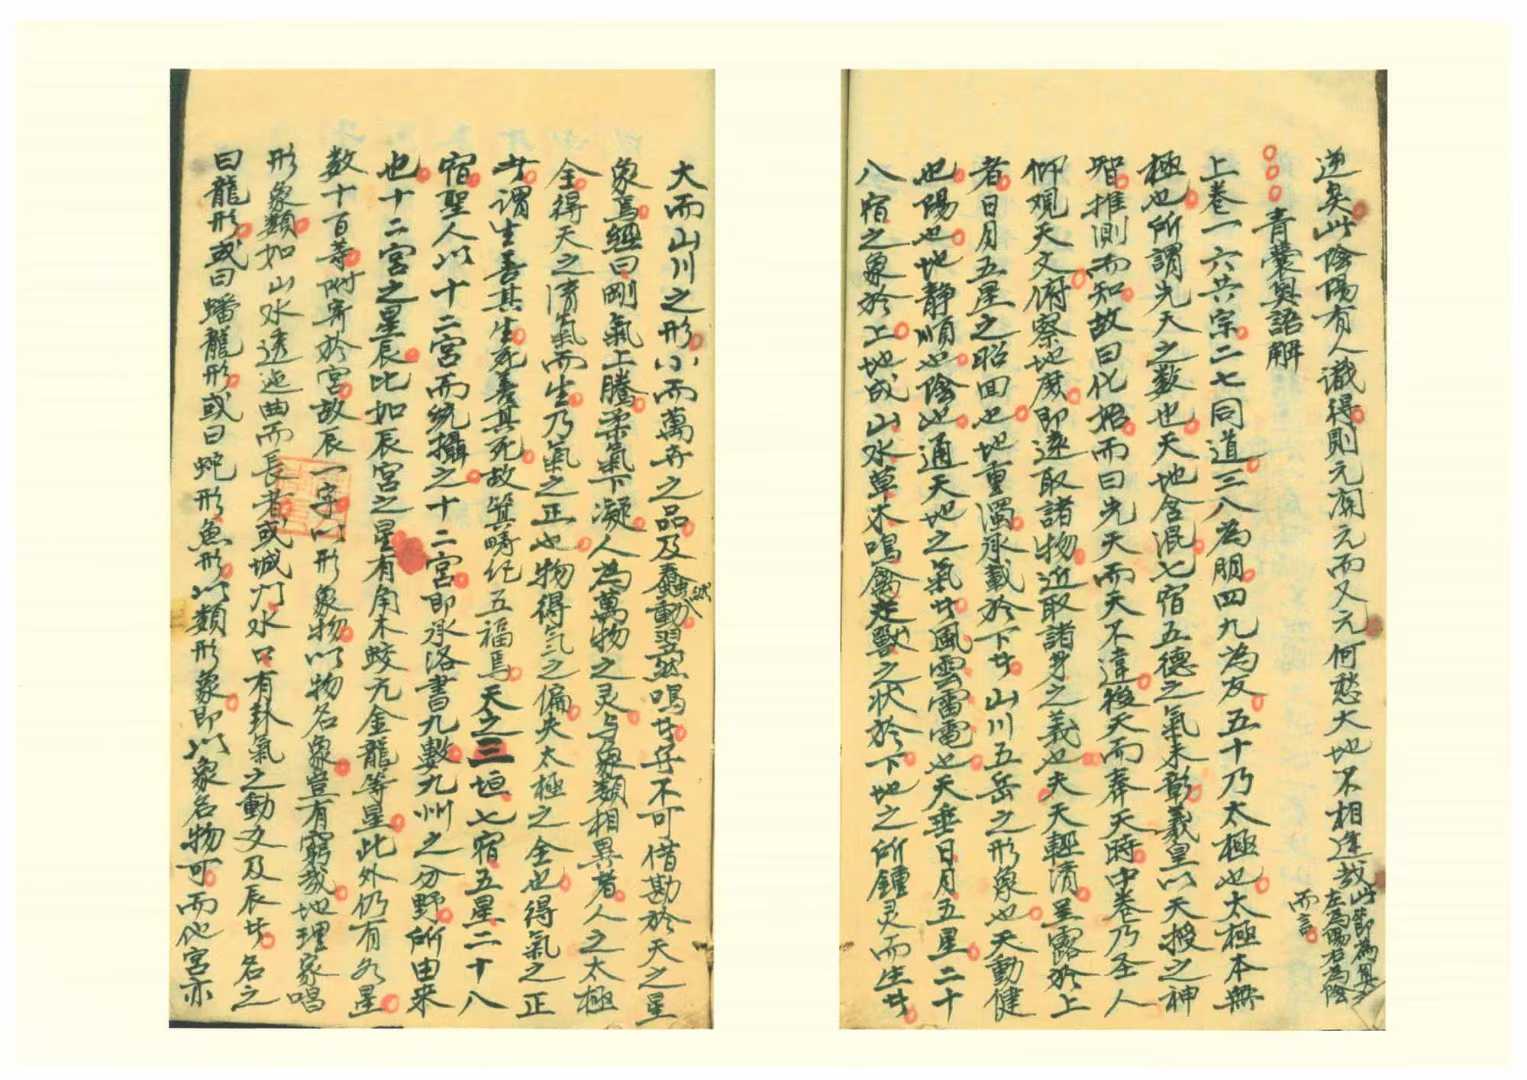 逆矣此陰陽有人識得則元關元而又元何愁大地不相逢哉此節為
左為陽右為陰
而言
青囊奧語解
上卷一六共宗二七同道三八為朋四九為友五十乃太極也太極本無
極也所謂先天之数也天地含混七宿五德之氣未彰羲皇以天授之神
智推測而知故曰化始而曰先天而天不違後天而奉天時中卷乃圣人
仰观天文俯察地度即遠取諸物近取諸身之義也夫天輕清呈露於上
者日月五星之昭回也地重濁承載於下廾山川五岳之形象也天動健
也陽也地静順也陰也通天地之氣廾風雲雷電也天垂日月五星二十
八宿之象於上地成山水草木鳴禽走獸之状於下地之所鍾灵而生廾
大而山川之形小而萬卉之品及蠢動翌然鳴廾
不可借勘於天之星
象焉經曰剛氣上騰柔氣下凝人為萬物之灵与象類相異者人之太極
全得天之清氣而生乃氣之正也物得氣之偏失太極之全也得氣之正
廾謂生善其生死善其死故箕疇紀五福焉天之三垣七宿五星二十八
宿聖人以十二宮而統攝之十二宮即承洛書九數九州之分野所由来
也十二宮之星辰比如辰宮之星有角木蛟亢金龍等星此外仍有各星
数十百等附寄於宮故辰一字以形象物以物名象豈有窮哉地理家唱
形象類如山水透迤曲而長者或城门水口有卦氣之動爻及辰廾名之
曰龍形或曰蟠龍形或曰蛇形魚形以類形象即以象名物可而他宮亦